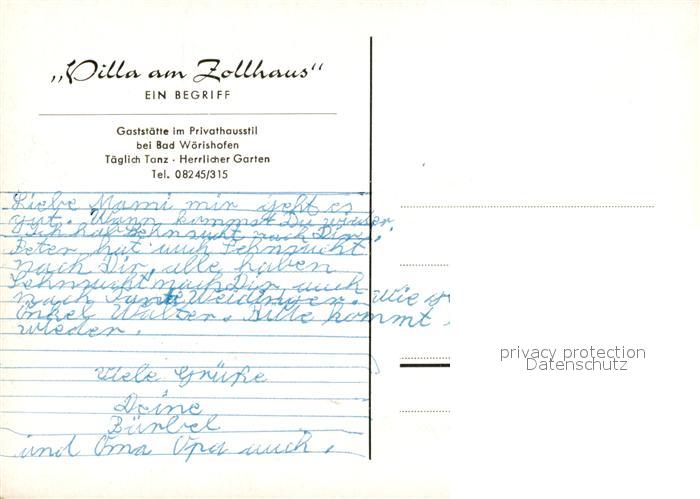 „Villa am Zollhaus“
EIN BEGRIFF
Gaststätte im Privathausstil
bei Bad Wörishofen
Täglich Tanz · Herrlicher Garten
Tel. 08245/315
Liebe Mami mir geht es
gut. Wann kommst Du wieder.
Ich hab Sehnsucht nach Dir.
Peter hat auch Sehnsucht
nach Dir, alle haben
Sehnsucht nach Dir, auch
nach Tante Weidinger. Wie
Onkel Walter. Bitte kommt
wieder.
Viele Grüße
Deine
Bärbel
und Oma Opa auch.
privacy protection
Datenschutz